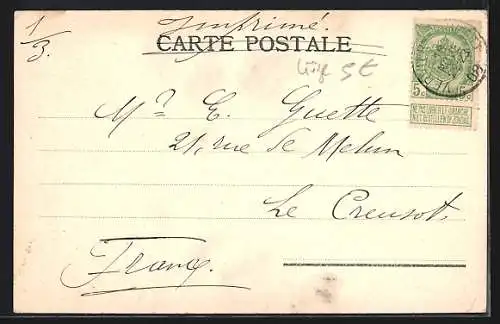 1/3.
Imprimé.
CARTE POSTALE
5 €
Mr E. Guette
21, rue de Melun
Le Creusot
France.
5c 5c
NE PAS LIVRER LE DIMANCHE
NIET BESTELLEN OP ZONDAG